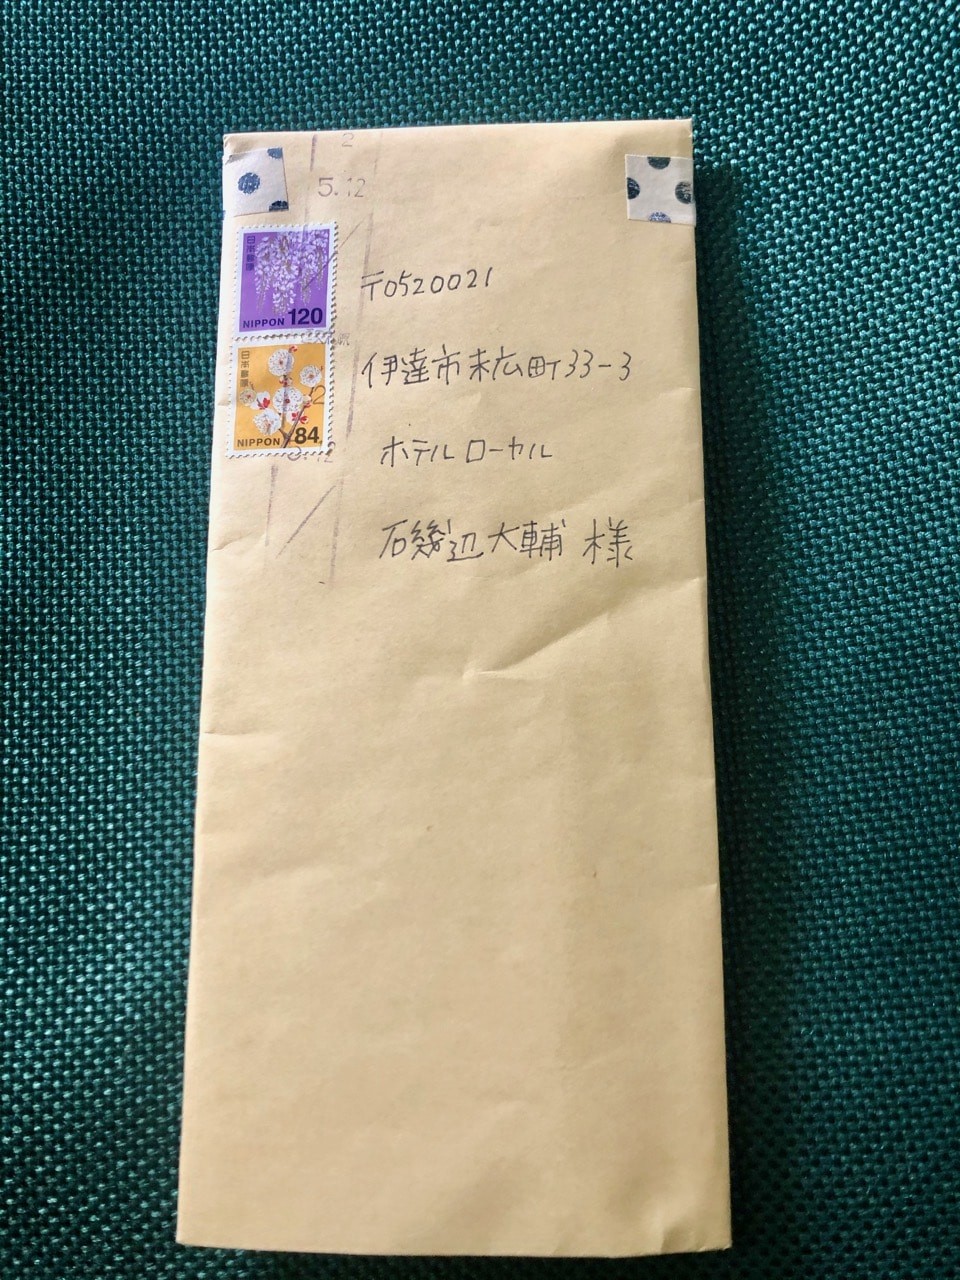 2
5.12
日本郵便
NIPPON 120
日本郵便
NIPPON 84
〒0520021
伊達市末広町33-3
ホテルローヤル
磯辺大輔 様